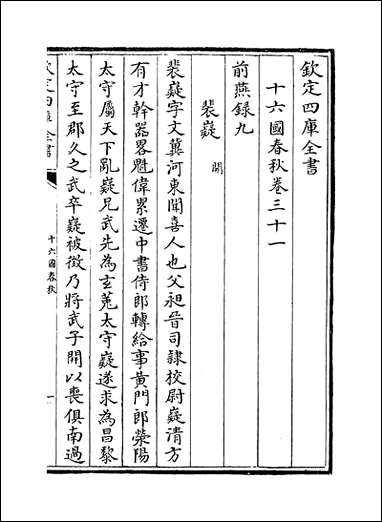 欽定四庫全書
十六國春秋卷三十一
前燕録九
裴嶷 開
裴嶷字文冀河東聞喜人也父昶晉司隷校尉嶷清方
有才幹器畧魁偉累遷中書侍郎轉給事黄門郎滎陽
太守屬天下亂嶷兄武先為玄菟太守嶷遂求為昌黎
太守至郡久之武卒嶷被徴乃將武子開以喪俱南過
欽定四庫全書
十六國春秋
一